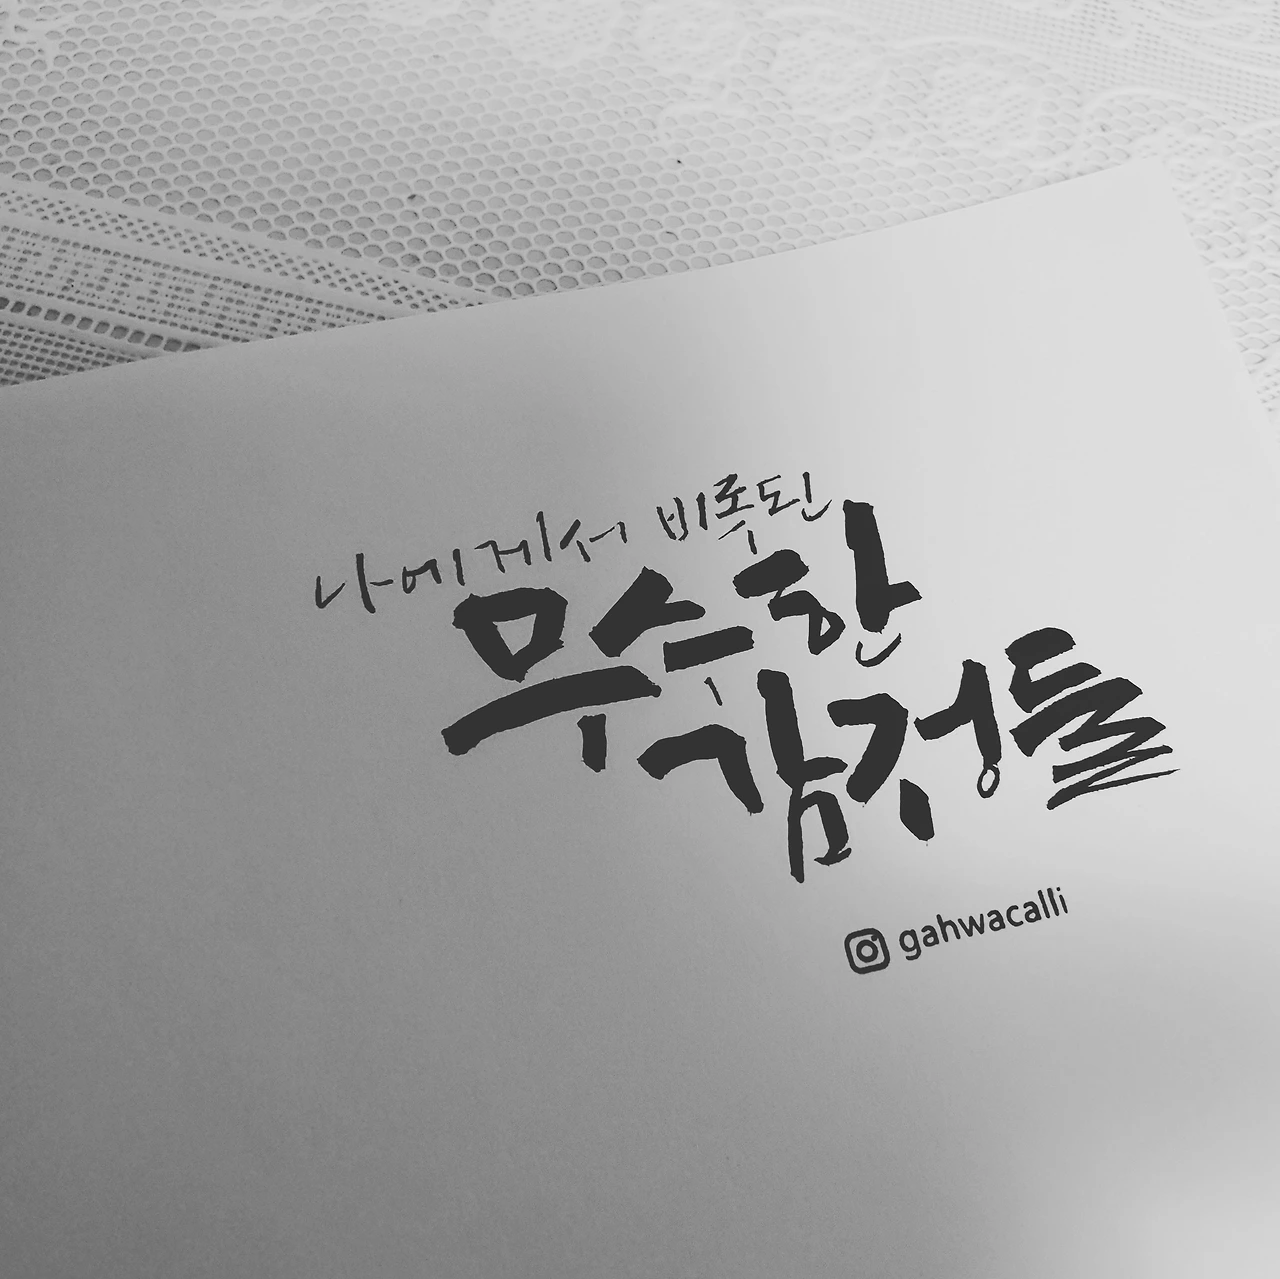 나에게서 비롯된
무수한
감정들
gahwacalli